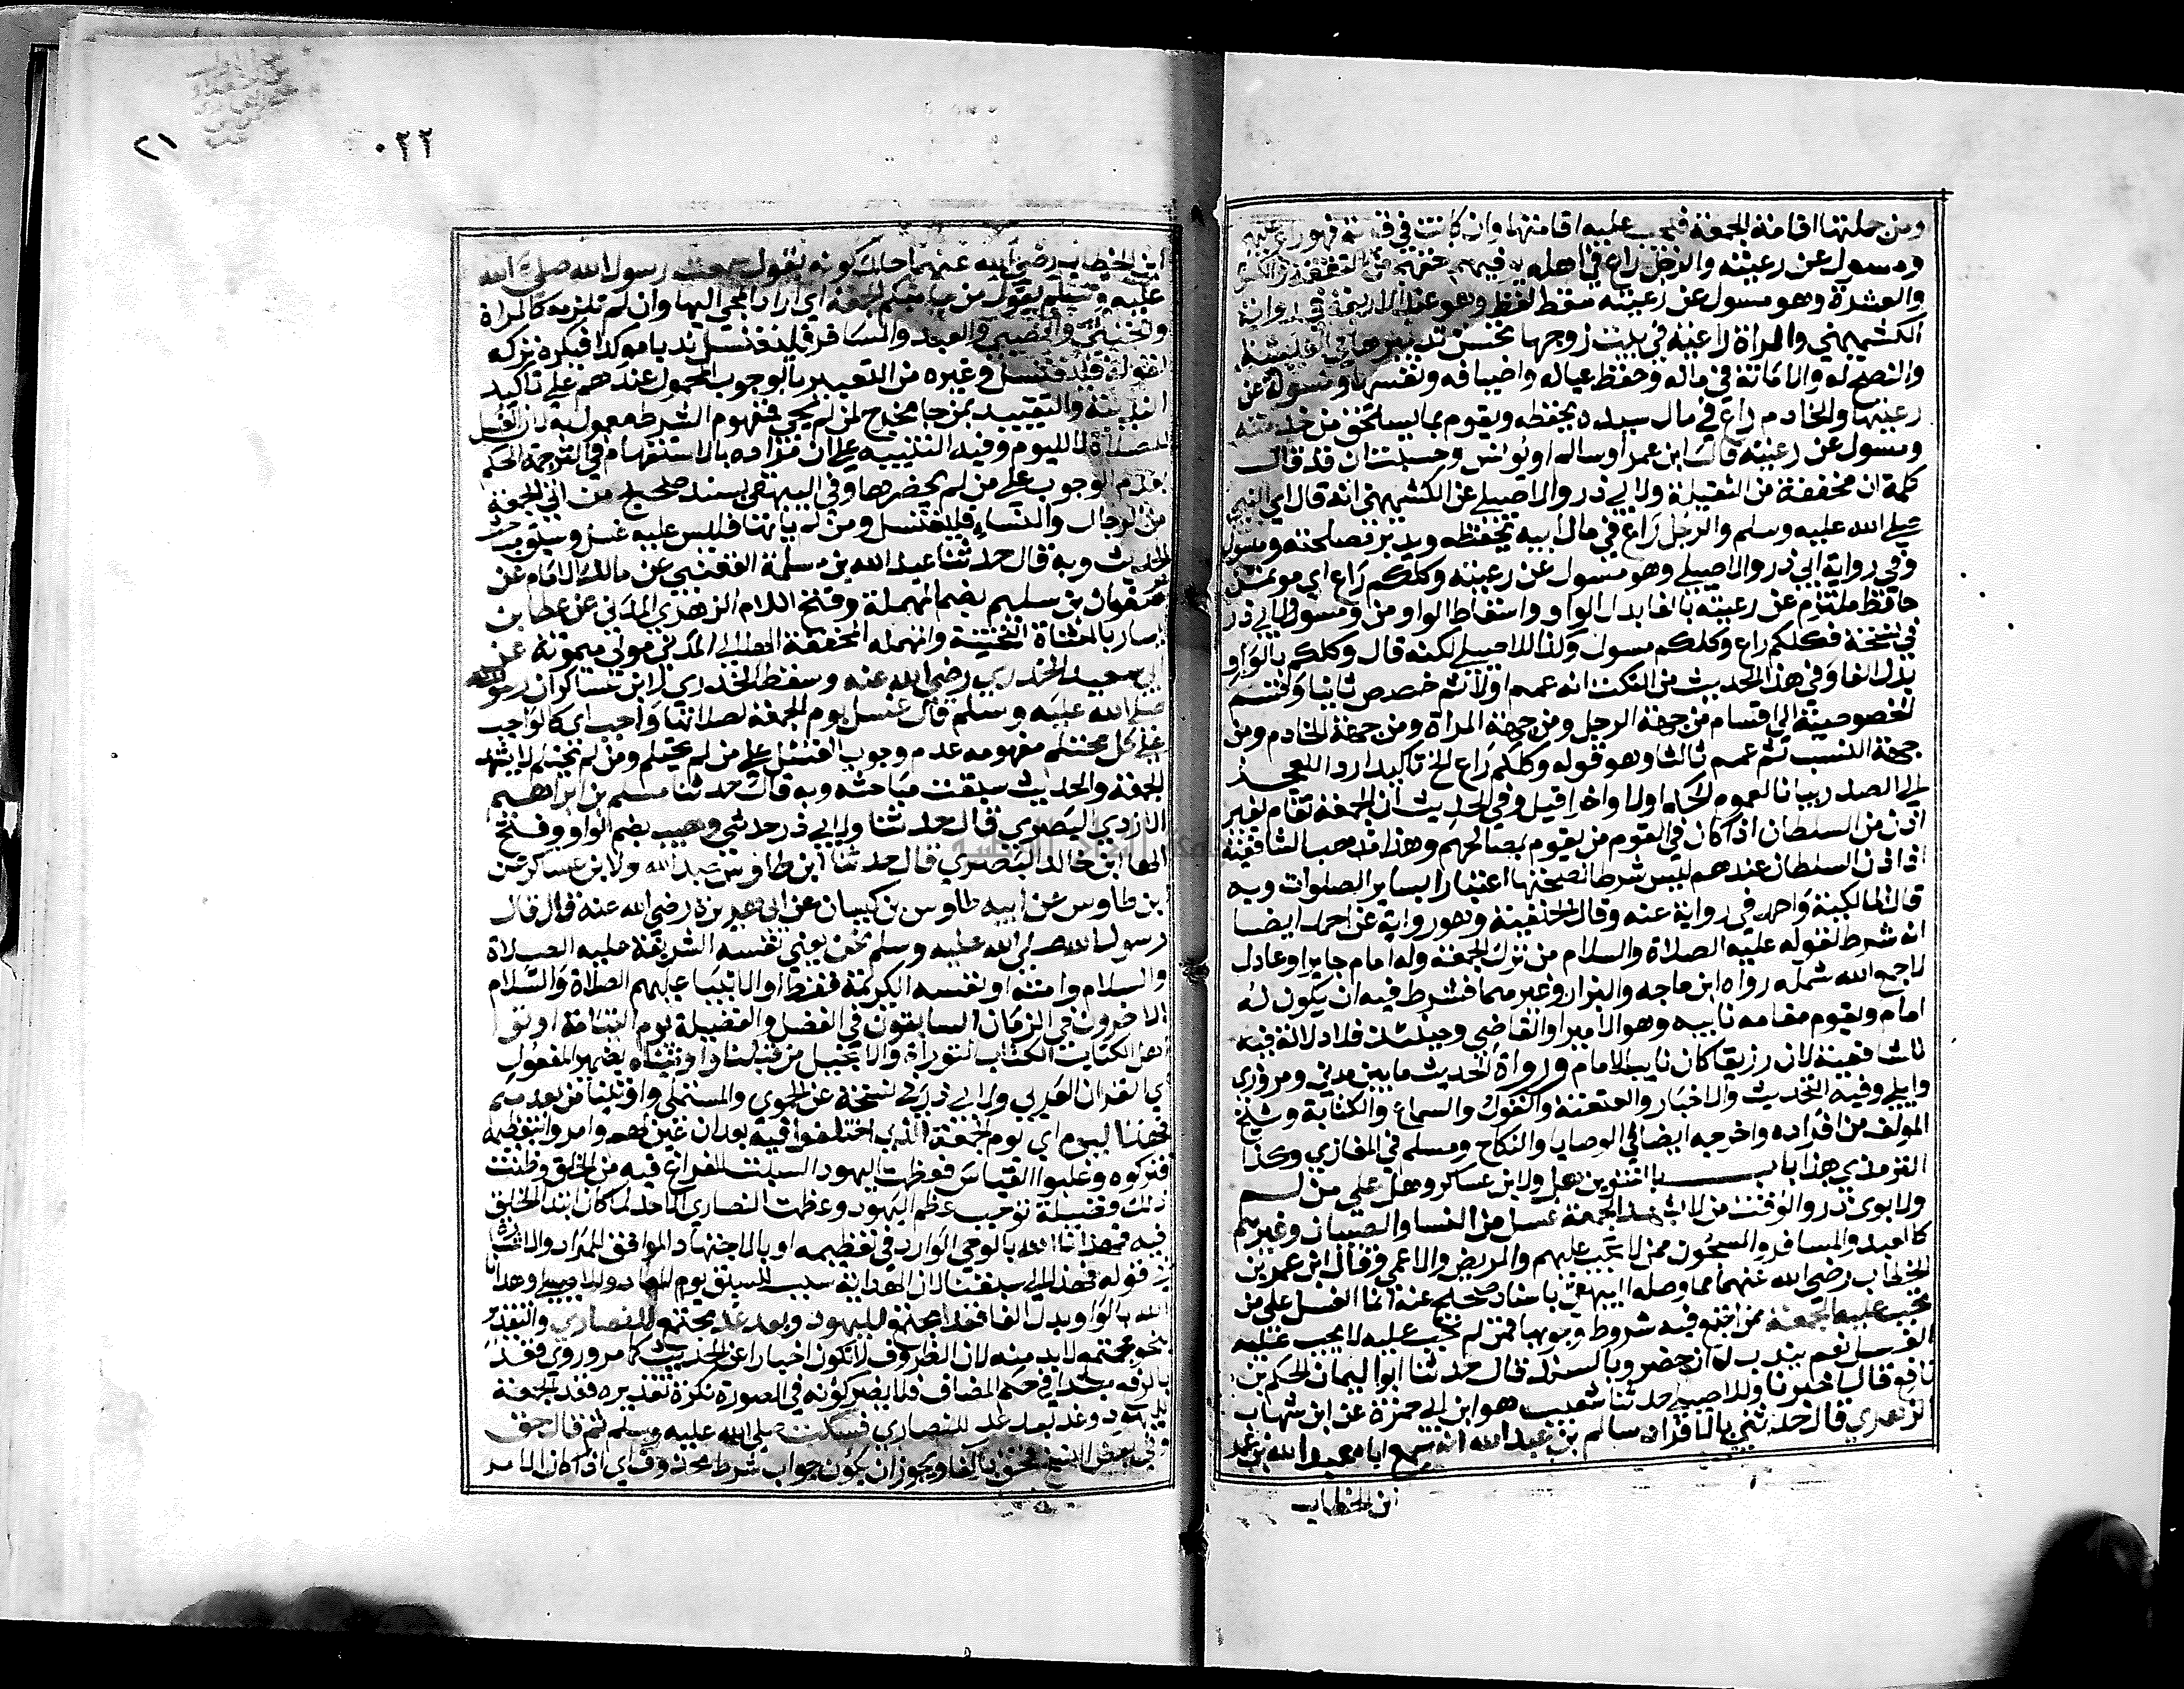 ومن جملتها اقامة الجمعة فيجب عليه اقامتها وان كانت في قرية فهو راع عليهم
ومسول عن رعيته والرجل راع في اهله يوفيهم حقهم من النفقة والكسوة
والعشرة وهو مسول عن رعيته سقط لفظ وهو عند الاربعة في رواية
الكشميهني والمراة راعية في بيت زوجها بحسن تدبيرها في المعيشة
والنصح له والامانة في ماله وحفظ عياله واضيافه ونفسها ومسولة عن
رعيتها والخادم راع في مال سيده يحفظه ويقوم بما يستحق من خدمته
ومسول عن رعيته قال ابن عمر او سالم او يونس وحسبت ان قد قال
كلمة ان مخففة من الثقيلة ولابي ذر والاصيلي عن الكشميهني انه قال اي النبي
صلى الله عليه وسلم والرجل راع في مال ابيه يحفظه ويدبر مصلحته ومسول
وفي رواية ابي ذر والاصيلي وهو مسول عن رعيته وكلكم راع اي موتمن
حافظ ملتزم عن رعيته بالفا بدل الواو واسقاط الواو من ومسول ولابي ذر
في نسخة فكلكم راع وكلكم مسول وكذا للاصيلي لكنه قال وكلكم بالواو
بدل الفا وفي هذا الحديث من النكت انه عمم اولا ثم خصص ثانيا وقسم
الخصوصية الى اقسام من جهة الرجل ومن جهة المراة ومن جهة الخادم ومن
جهة النسب ثم عمم ثالثا وهو قوله وكلكم راع الخ تاكيدا ورد اللعجز
الى الصدر بيانا لعموم الحكم اولا واخرا قيل وفي الحديث ان الجمعة تقام بغير
اذن من السلطان اذا كان في القوم من يقوم بمصالحهم وهذا مذهب الشافعية
اذ اذن السلطان عندهم ليس شرطا لصحتها اعتبارا بساير الصلوات وبه
قال المالكية واحمد في رواية عنه وقال الحنفية وهو رواية عن احمد ايضا
انه شرط لقوله عليه الصلاة والسلام من ترك الجمعة وله امام جاير او عادل
لا جمع الله شمله رواه ابن ماجه والبزار وغيرهما فشرط فيه ان يكون له
امام ويقوم مقامه نايبه وهو الامير او القاضي وحينئذ فلا دلالة فيه
للشافعية لان رزيقا كان نايب الامام ورواة الحديث ما بين مدني ومروزي
وايلي وفيه التحديث والاخبار والعنعنة والقول والسماع والكتابة وشيخ
المولف من افراده واخرجه ايضا في الوصايا والنكاح ومسلم في المغازي وكذا
الترمذي هذا باب بالتنوين هل ولابن عساكر وهل على من لم
ولابوي ذر والوقت من لا يشهد الجمعة غسل من النسا والصبيان وغيرهم
كالعبد والمسافر والمسجون ممن لا تجب عليهم والمريض والاعمى وقال ابن عمر بن
الخطاب رضي الله عنهما مما وصله البيهقي باسناد صحيح عنه انما الغسل على من
تجب عليه الجمعة ممن اجتمع فيه شروط وجوبها فمن لم تجب عليه لا يجب عليه
الغسل نعم يندب له ان حضر وبالسند قال حدثنا ابو اليمان الحكم بن
نافع قال اخبرنا وللاصيلي حدثنا شعيب هو ابن ابي حمزة عن ابن شهاب
الزهري قال حدثني بالافراد سالم بن عبد الله انه سمع اباه عبد الله بن عمر
ابن الخطاب
٢١
٠٢٢
ابن الخطاب رضي الله عنهما حال كونه يقول سمعت رسول الله صلى الله
عليه وسلم يقول من جا منكم الجمعة اي اراد المجي اليها وان لم تلزمه كالمراة
والخنثى والصبي والعبد والمسافر فليغتسل ندبا موكدا فيكره تركه
لقوله فليغتسل وغيره من التعبير بالوجوب المحمول عندهم على تاكيد
الندبية والتقييد بمن جا مخرج لمن لم يجي فمفهوم الشرط معمول به لان الغسل
للصلاة لا لليوم وفيه التنبيه على ان مراده بالاستفهام في الترجمة الحكم
بعدم الوجوب على من لم يحضرها وفي البيهقي بسند صحيح من اتى الجمعة
من الرجال والنساء فليغتسل ومن لم ياتها فليس عليه غسل وسبق
الحديث وبه قال حدثنا عبد الله بن مسلمة القعنبي عن مالك الامام عن
صفوان بن سليم بضم المهملة وفتح اللام الزهري المدني عن عطا بن
يسار بالمثناة التحتية والمهمله المخففة الهلالي المدني مولى ميمونة عن
ابي سعيد الخدري رضي الله عنه وسقط الخدري لابن عساكر ان رسول الله
صلى الله عليه وسلم قال غسل يوم الجمعة لصلاتها واجب اي كالواجب
على كل محتلم مفهومه عدم وجوب الغسل على من لم يحتلم ومن لم يحتلم لا يشهد
الجمعة والحديث سبقت مباحثه وبه قال حدثنا مسلم بن ابراهيم
الازدي البصري قال حدثنا ولابي ذر حدثني وهيب بضم الواو وفتح
الها ابن خالد البصري قال حدثنا ابن طاوس عبد الله ولابن عساكر عن
ابن طاوس عن ابيه طاوس بن كيسان عن ابي هريرة رضي الله عنه قال قال
رسول الله صلى الله عليه وسلم نحن يعني نفسه الشريفة عليه الصلاة
والسلام وامته او نفسه الكريمة فقط او الانبيا عليهم الصلاة والسلام
الاخرون في الزمان السابقون في الفضل والفضيلة يوم القيامة اوتوا
اهل الكتاب الكتاب التوراة والانجيل من قبلنا واوتيناه بضمير المفعول
اي القران العزيز ولابي ذر في نسخة عن الحموي والمستملي واوتينا من بعدهم
فهذا اليوم اي يوم الجمعة الذي اختلفوا فيه بعد ان عين لهم وامروا بتعظيمه
فتركوه وغلبوا القياس فعظمت اليهود السبت للفراغ فيه من الخلق وظنت
ذلك فضيلة توجب عظم اليهود وعظمت النصارى الاحد لما كان ابتدا الخلق
فيه فهدانا الله بالوحي الوارد في تعظيمه او بالاجتهاد الموافق للمراد والاشارة
في قوله فهذا الى سبقنا لان الهداية سبب للسبق يوم المعاد وللاصيلي وهدانا
الله بالواو بدل الفا فغدا مجتمع لليهود وبعد غد مجتمع للنصارى والتقدير
بنحو مجتمع لابد منه لان الظروف لا تكون اخبارا عن الجثث كما مر وروي فغد
بالرفع مبتدا في حكم المضاف فلا يضر كونه في الصورة نكرة تقديره فغد الجمعة
لليهود وغد بعد غد للنصارى فسكت صلى الله عليه وسلم ثم قال حق
وفي بعض النسخ فحق بالفا ويجوز ان يكون جواب شرط محذوف اي اذا كان الامر